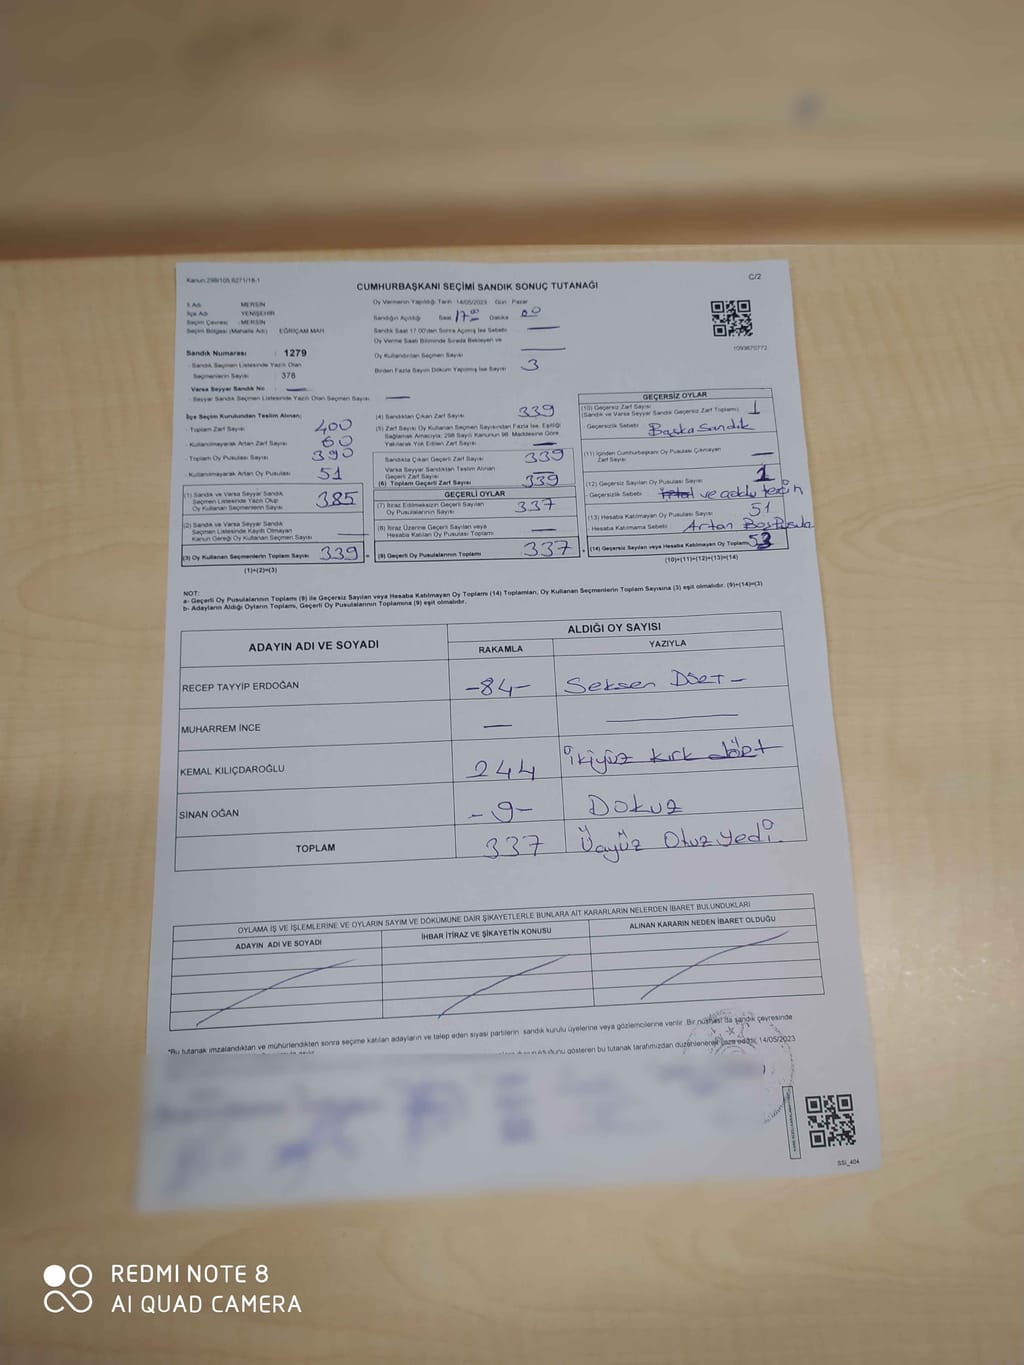 Kanun:298/105,6271/18-1
C/2
CUMHURBAŞKANI SEÇİMİ SANDIK SONUÇ TUTANAĞI
İl Adı : MERSİN
İlçe Adı : YENİŞEHİR
Seçim Çevresi : MERSİN
Seçim Bölgesi (Mahalle Adı) : EĞRİÇAM MAH
Sandık Numarası : 1279
- Sandık Seçmen Listesinde Yazılı Olan
Seçmenlerin Sayısı : 378
Varsa Seyyar Sandık No : —
- Seyyar Sandık Seçmen Listesinde Yazılı Olan Seçmen Sayısı : —
Oy Vermenin Yapıldığı Tarih : 14/05/2023 Gün : Pazar
Sandığın Açıldığı Saat 17:00 Dakika 00
Sandık Saat 17.00'den Sonra Açılmış İse Sebebi —
Oy Verme Saati Bitiminde Sırada Bekleyen ve
Oy Kullandırılan Seçmen Sayısı —
Birden Fazla Sayım Döküm Yapılmış İse Sayısı 3
1093870772
İlçe Seçim Kurulundan Teslim Alınan;
- Toplam Zarf Sayısı 400
- Kullanılmayarak Artan Zarf Sayısı 60
- Toplam Oy Pusulası Sayısı 390
- Kullanılmayarak Artan Oy Pusulası 51
(1) Sandık ve Varsa Seyyar Sandık
Seçmen Listesinde Yazılı Olup
Oy Kullanan Seçmenlerin Sayısı 385
(2) Sandık ve Varsa Seyyar Sandık
Seçmen Listesinde Kayıtlı Olmayan
Kanun Gereği Oy Kullanan Seçmen Sayısı —
(3) Oy Kullanan Seçmenlerin Toplam Sayısı 339 =
(1)+(2)=(3)
(4) Sandıktan Çıkan Zarf Sayısı 339
(5) Zarf Sayısı Oy Kullanan Seçmen Sayısından Fazla İse, Eşitliği
Sağlamak Amacıyla; 298 Sayılı Kanunun 98. Maddesine Göre
Yakılarak Yok Edilen Zarf Sayısı —
Sandıkta Çıkan Geçerli Zarf Sayısı 339
Varsa Seyyar Sandıktan Teslim Alınan
Geçerli Zarf Sayısı —
(6) Toplam Geçerli Zarf Sayısı 339
GEÇERLİ OYLAR
(7) İtiraz Edilmeksizin Geçerli Sayılan
Oy Pusulalarının Sayısı 337
(8) İtiraz Üzerine Geçerli Sayılan veya
Hesaba Katılan Oy Pusulası Toplamı —
(9) Geçerli Oy Pusulalarının Toplamı 337 +
GEÇERSİZ OYLAR
(10) Geçersiz Zarf Sayısı
(Sandık ve Varsa Seyyar Sandık Geçersiz Zarf Toplamı) 1
- Geçersizlik Sebebi Başka Sandık
(11) İçinden Cumhurbaşkanı Oy Pusulası Çıkmayan
Zarf Sayısı —
(12) Geçersiz Sayılan Oy Pusulası Sayısı 1
- Geçersizlik Sebebi
(13) Hesaba Katılmayan Oy Pusulası Sayısı 51
- Hesaba Katılmama Sebebi Artan Boş Pusula
(14) Geçersiz Sayılan veya Hesaba Katılmayan Oy Toplamı 53
(10)+(11)+(12)+(13)=(14)
NOT:
a- Geçerli Oy Pusulalarının Toplamı (9) ile Geçersiz Sayılan veya Hesaba Katılmayan Oy Toplamı (14) Toplamları, Oy Kullanan Seçmenlerin Toplam Sayısına (3) eşit olmalıdır. (9)+(14)=(3)
b- Adayların Aldığı Oyların Toplamı, Geçerli Oy Pusulalarının Toplamına (9) eşit olmalıdır.
ADAYIN ADI VE SOYADI
ALDIĞI OY SAYISI
RAKAMLA YAZIYLA
RECEP TAYYİP ERDOĞAN -84- Seksen Dört -
MUHARREM İNCE — —
KEMAL KILIÇDAROĞLU 244 İkiyüz kırk dört
SİNAN OĞAN -9- Dokuz
TOPLAM 337 Üçyüz Otuz yedi.
OYLAMA İŞ VE İŞLEMLERİNE VE OYLARIN SAYIM VE DÖKÜMÜNE DAİR ŞİKAYETLERLE BUNLARA AİT KARARLARIN NELERDEN İBARET BULUNDUKLARI
ADAYIN ADI VE SOYADI İHBAR İTİRAZ VE ŞİKAYETİN KONUSU ALINAN KARARIN NEDEN İBARET OLDUĞU
*Bu tutanak imzalandıktan ve mühürlendikten sonra seçime katılan adayların ve talep eden siyasi partilerin sandık kurulu üyelerine veya gözlemcilerine verilir. Bir nüshası da sandık çevresinde
gösteren bu tutanak tarafımızdan düzenlenerek imza edildi. 14/05/2023
SSİ_404
REDMI NOTE 8
AI QUAD CAMERA